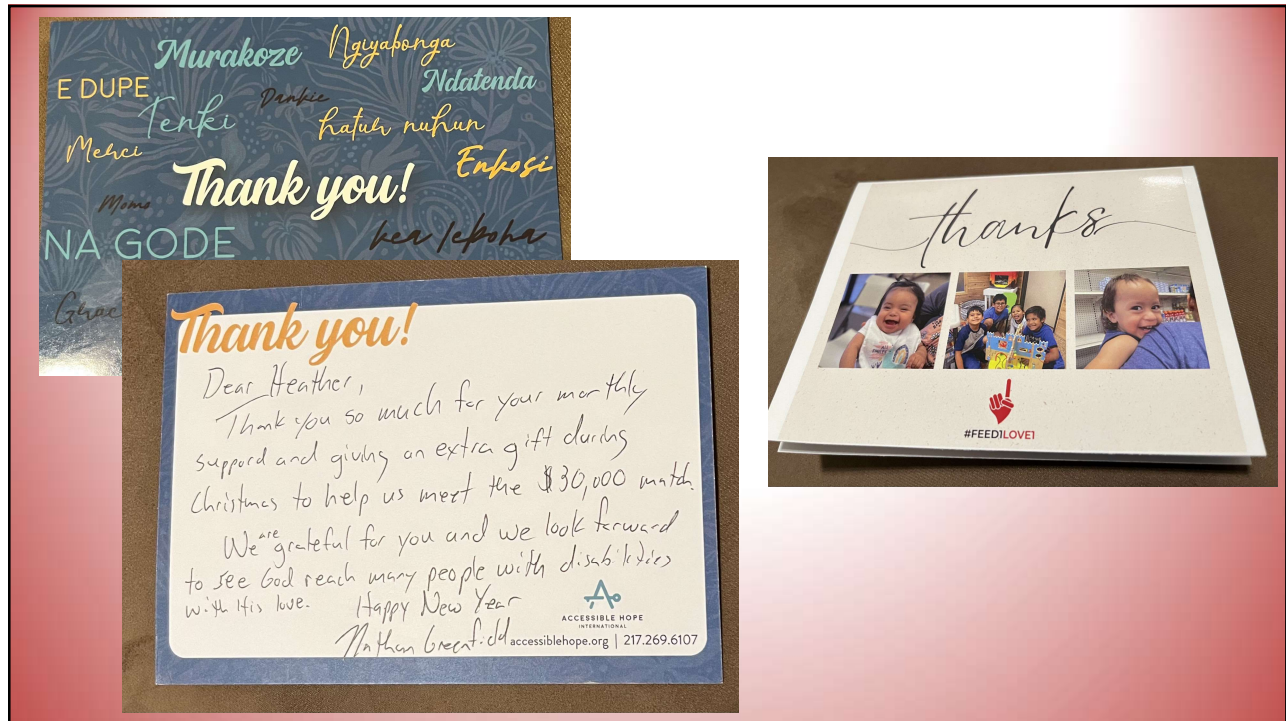 Murakoze
Ngiyabonga
E DUPE
Ndatenda
Tenki
Dankie
hatur nuhun
Merci
Enkosi
Thank you!
NA GODE
kea leboha
Thank you!
Dear Heather,
Thank you so much for your monthly
support and giving an extra gift during
Christmas to help us meet the $30,000 match.
We are grateful for you and we look forward
to see God reach many people with disabilities
with His love. Happy New Year
Nathan Greenfield
ACCESSIBLE HOPE
INTERNATIONAL
accessiblehope.org | 217.269.6107
thanks
#FEED1LOVE1